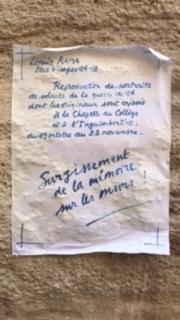 Louis RAMA
Nos Visages 14-18
Reproduction de portraits
de soldats de la guerre de 14
dont les originaux sont exposés
à la Chapelle du Collège
et à l'Inguimbertine,
du 19 octobre au 22 novembre.
Surgissement
de la mémoire
sur les murs !